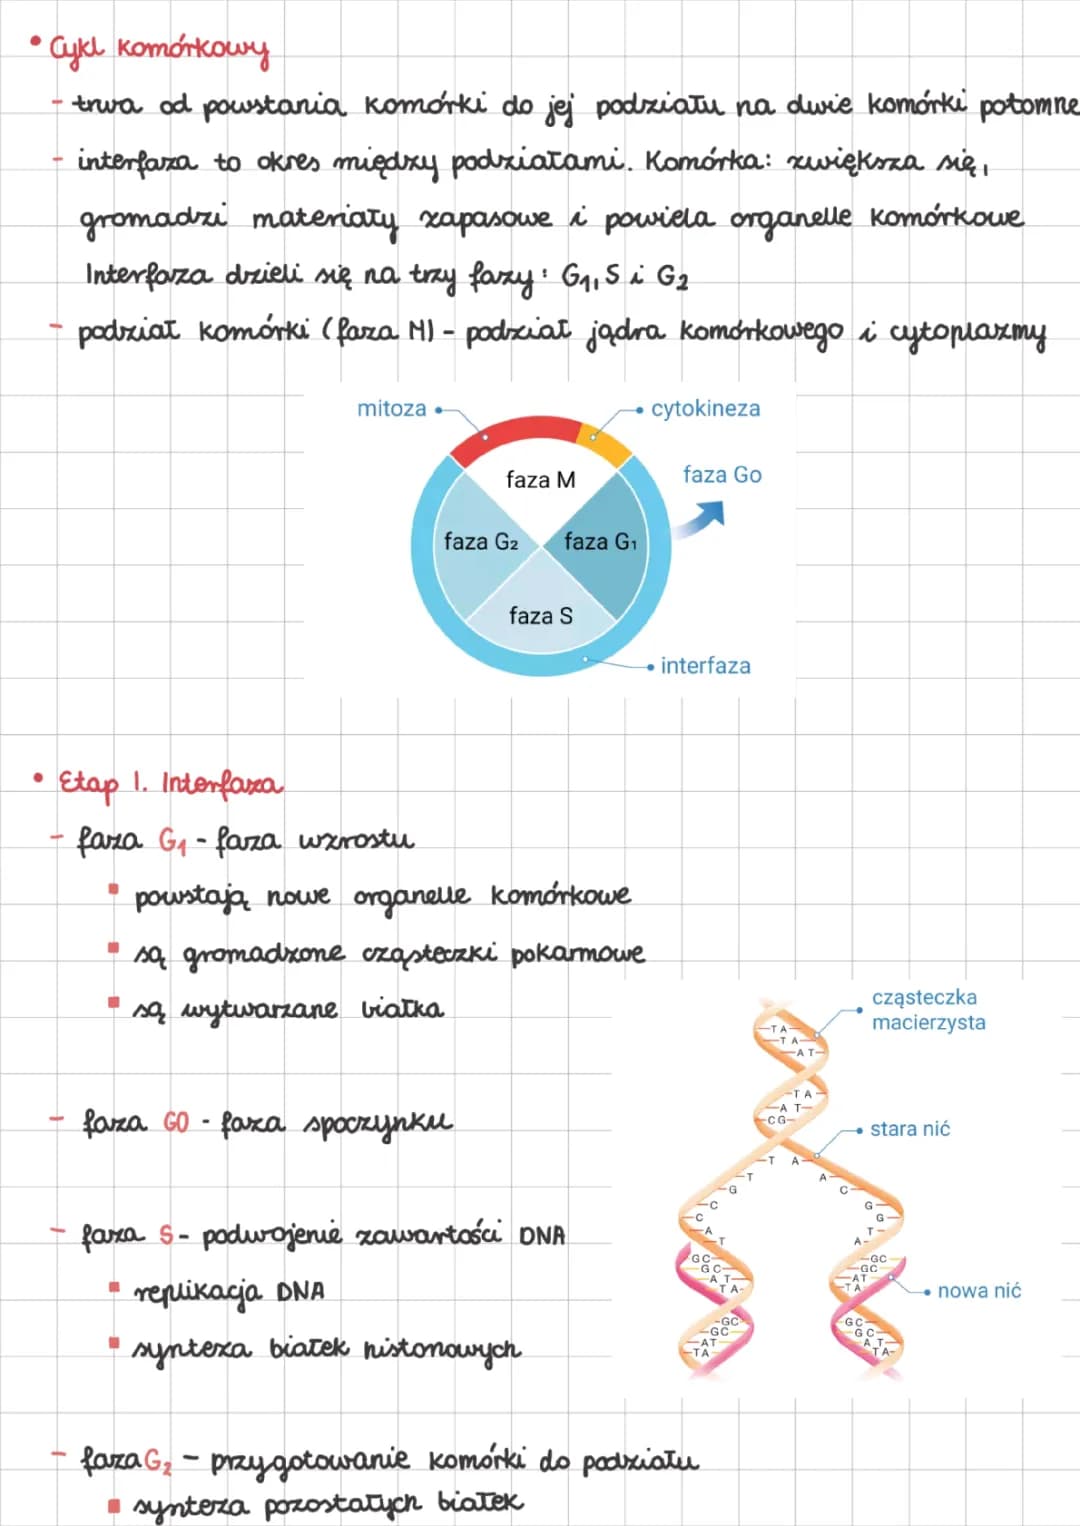 • Cykl komórkowy
- trwa od powstania komórki do jej podziału na dwie komórki potomne
- interfaza to okres między podziałami. Komórka: zwiększa się,
gromadzi materiały zapasowe i powiela organelle komórkowe
Interfaza dzieli się na trzy fazy: G1, S i G2
- podział komórki (faza M) - podział jądra komórkowego i cytoplazmy
mitoza
cytokineza
faza M
faza Go
faza G2
faza G1
faza S
interfaza
• Etap 1. Interfaza
- faza G1 - faza wzrostu
▪ powstają nowe organelle komórkowe
▪ są gromadzone cząsteczki pokarmowe
▪ są wytwarzane białka
cząsteczka
macierzysta
- faza G0 - faza spoczynku
stara nić
- faza S - podwojenie zawartości DNA
▪ replikacja DNA
nowa nić
▪ synteza białek histonowych
- faza G2 - przygotowanie komórki do podziału
▪ synteza pozostałych białek